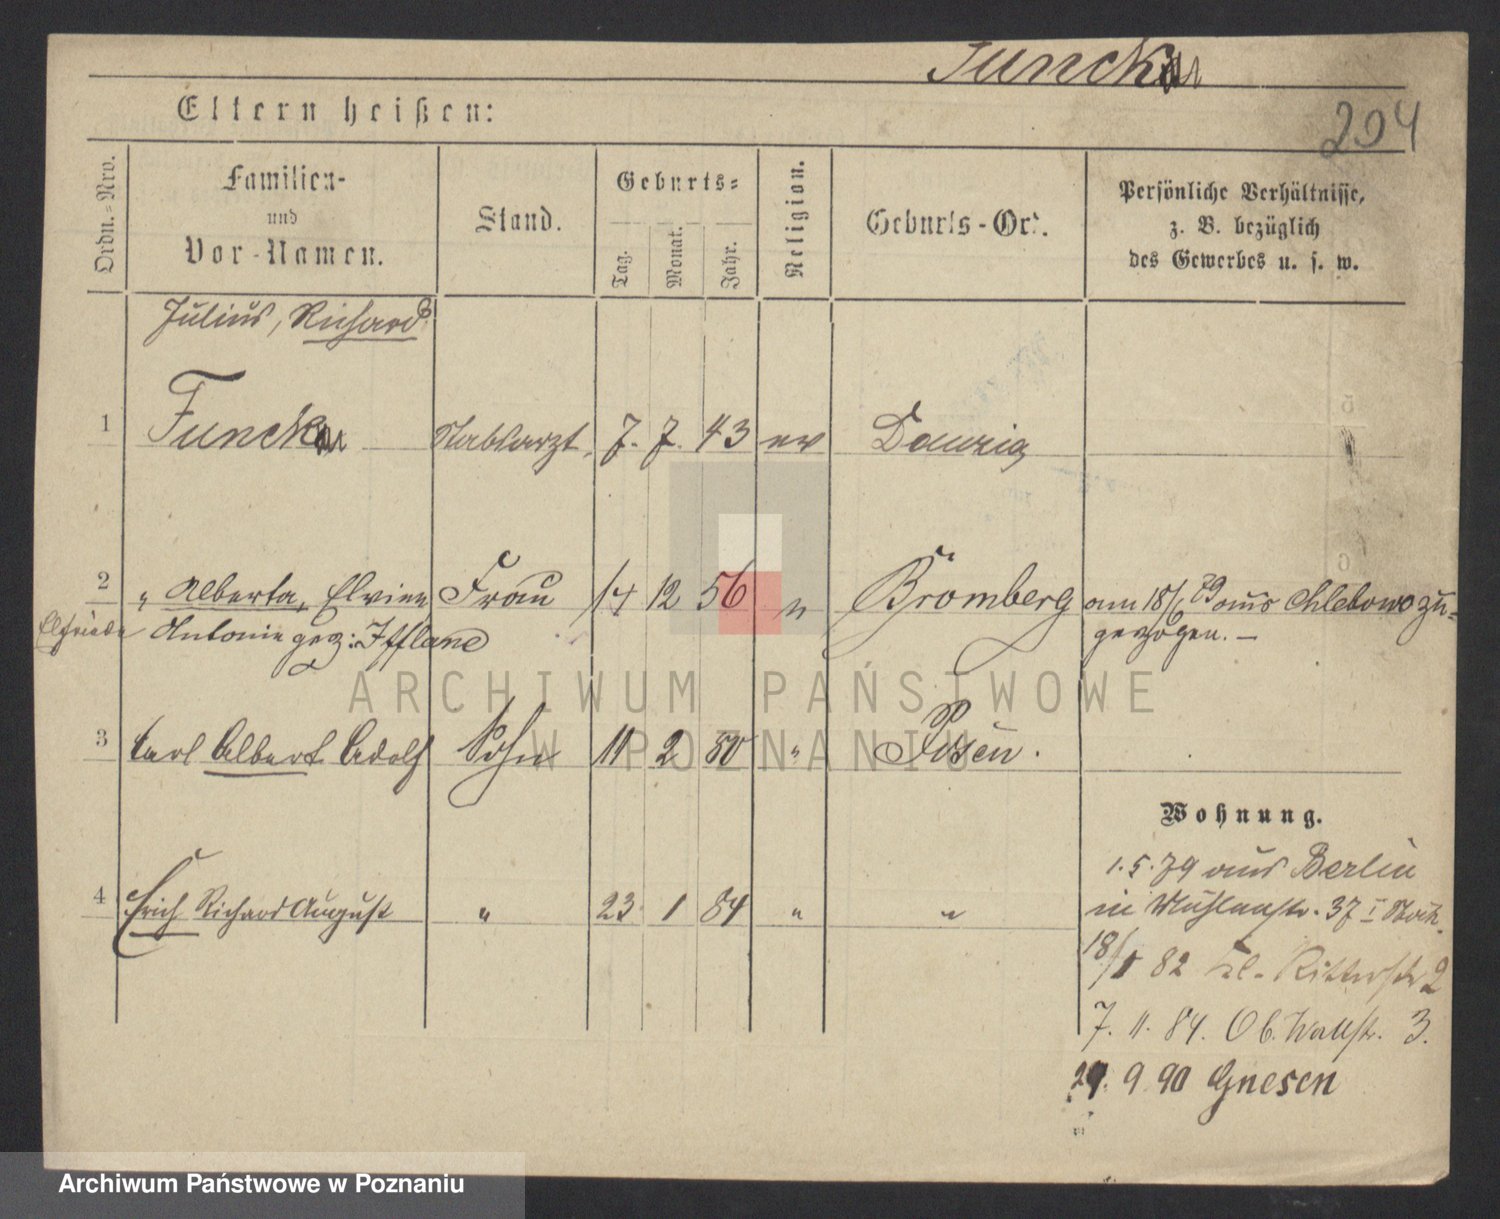 Funcke
204
Eltern heißen:
Ordn.-Nro.
Familien-
und
Vor-Namen.
Stand.
Geburts-
Tag.
Monat.
Jahr.
Religion.
Geburts-Ort.
Persönliche Verhältnisse,
z. B. bezüglich
des Gewerbes u. s. w.
Julius, Richard
1 Funcke Stabsarzt. 7. 7. 43 ev Danzig
2 " Alberta, Elvine Frau 14 12 56 " Bromberg am 18/6 79 aus Chlebowo zu-
Elfriede Antonie geb: Iffland gezogen. —
3 Carl Albert Adolf Sohn 11 2 80 " Posen.
Wohnung.
1.5.79 aus Berlin
4 Erich Richard August " 23 1 84 " " in Mühlenstr. 37 I Stock.
18/ 82 kl. Ritterstr 2
7. 11. 84. Ob. Wallstr. 3.
29. 9 90 Gnesen
ARCHIWUM PAŃSTWOWE
W POZNANIU
Archiwum Państwowe w Poznaniu